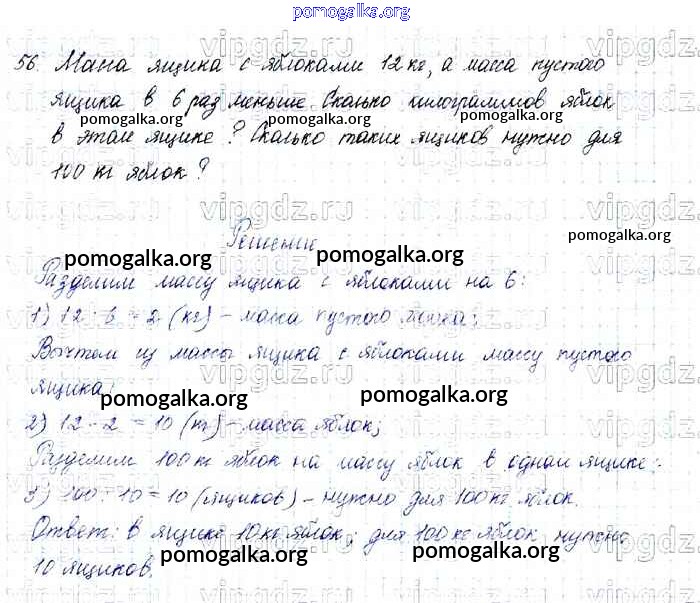 pomogalka.org
56. Масса ящика с яблоками 12 кг, а масса пустого
ящика в 6 раз меньше. Сколько килограммов яблок
в этом ящике? Сколько таких ящиков нужно для
100 кг яблок?
Решение
Разделим массу ящика с яблоками на 6:
1) 12 : 6 = 2 (кг) – масса пустого ящика;
Вычтем из массы ящика с яблоками массу пустого
ящика:
2) 12 - 2 = 10 (кг) – масса яблок;
Разделим 100 кг яблок на массу яблок в одном ящике:
3) 100 : 10 = 10 (ящиков) – нужно для 100 кг яблок.
Ответ: в ящике 10 кг яблок; для 100 кг яблок нужно
10 ящиков.